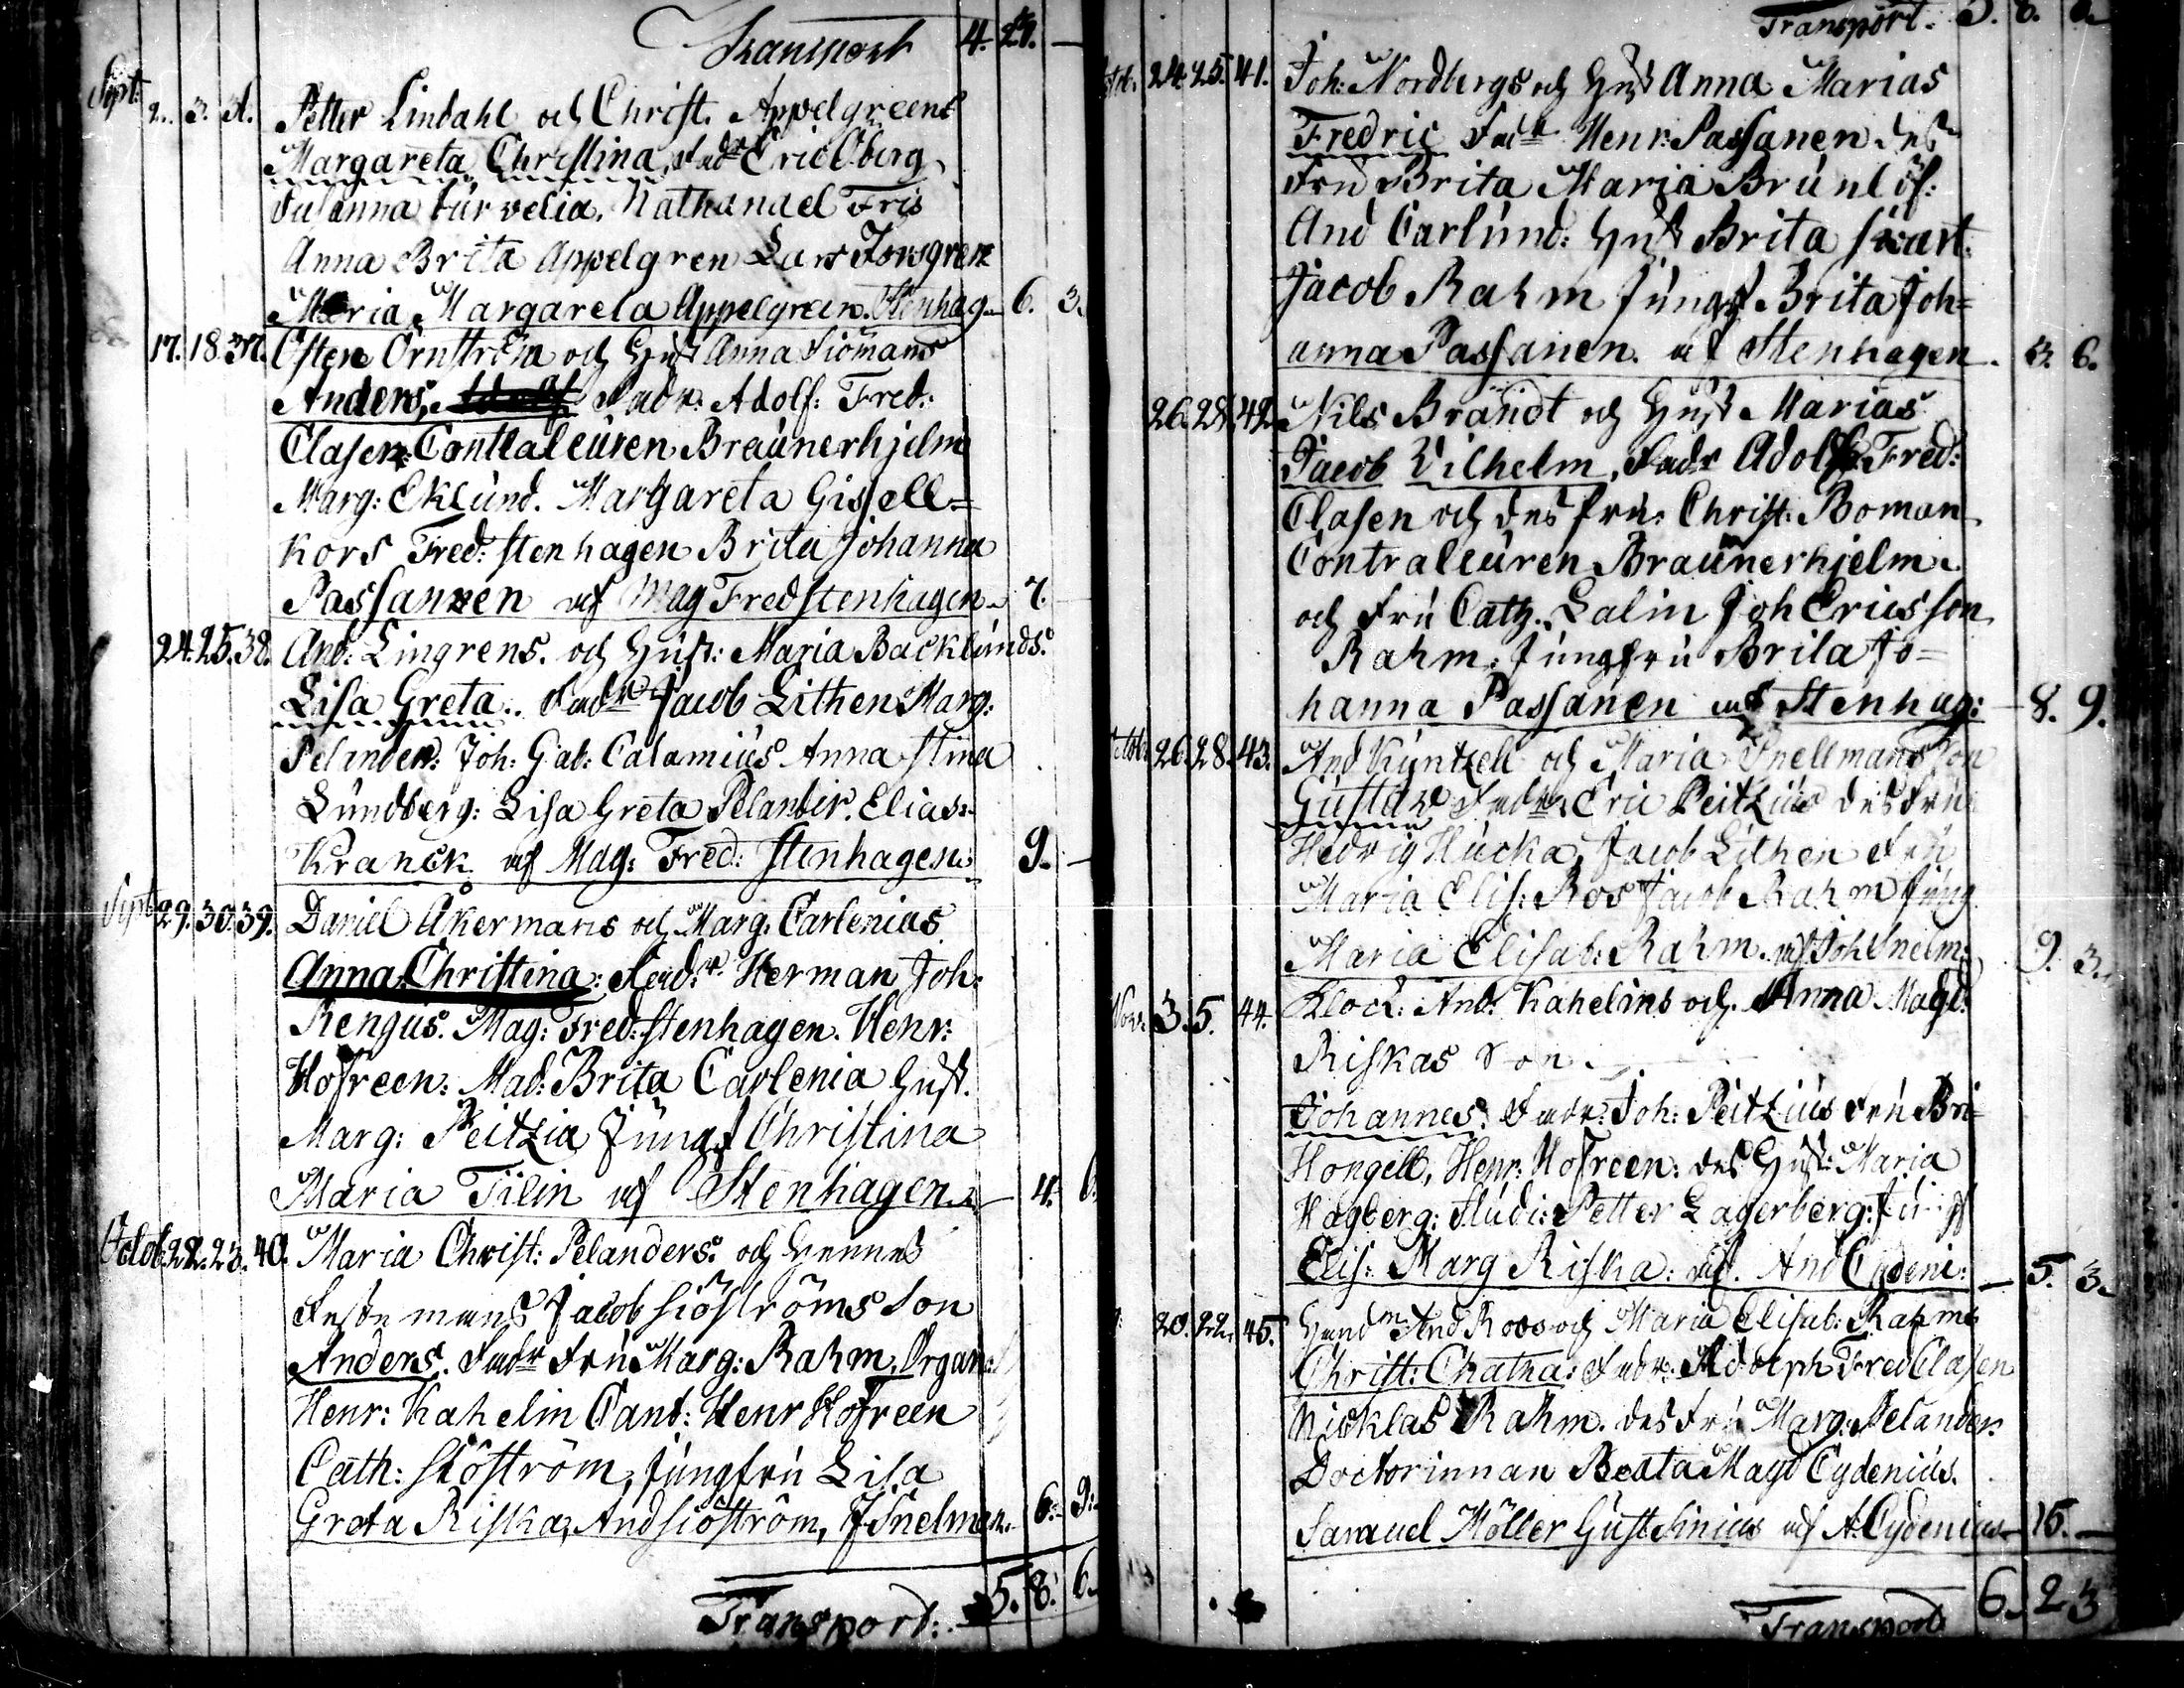 Transport 4. 29. —
Sept: 2. 3. Petter Lindahl och Christ. Appelgreens
Margareta Christina, Fadr Eric Öberg
Susanna Nathanael Fris
Anna Brita Appelgren Lars Forsgren
Maria Margareta Appelgreen. Stenhag— 6. 3.
17. 18. 37. Östen Örnström och Hust Anna Siömans
Anders, Fadr: Adolf: Fred:
Clasen: Contraleuren Braunerhjelm
Marg: Eklund. Margareta Gissell=
kors Fred: Stenhagen Brita Johanna
Passanen af Mag Fred Stenhagen— 7. —
24. 25. 38. And: Lingrens. och Hust: Maria Backlunds.
Lisa Greta.. Fadr Jacob Lithen Marg:
Pelander: Joh: Gab: Calamius Anna Stina
Lundberg: Lisa Greta Pelander. Elias
Kranck af Mag: Fred: Stenhagen. 9. —
Sept 29. 30. 39. Daniel Åkermans och Marg: Carlenias
Anna Christina: Fad:r Herman Joh:
Rengus. Mag: Fred: Stenhagen. Henr:
Hofreen: Mad: Brita Carlenia Hust.
Marg: Peitzia Jungf Christina
Maria Tilin af Stenhagen.— 4. 6.
Octob: 22. 23. 40. Maria Christ: Pelanders: och hennes
Feste mans Jacob Siöströms Son
Anders. Fadr Fru Marg: Rahm, Organ:
Henr: Kahelin Cant: Henr Hofreen
Cath: Siöström, Jungfru Lisa
Greta Riska, And Siöström, J Snelman. 6. 9.
Transport: 5. 8. 6.
Transport. 5. 8. 6.
24. 25. 41. Joh: Nordbergs och Hust Anna Marias
Fredric Fadr Henr: Passanen des
Fru Brita Maria Brunlöf:
And Carlund: Hust Brita Swart.
Jacob Rahm Jungf Brita Joh=
anna Passanen. af Stenhagen. 3. 6.
26. 28. 42. Nils Brandt och Hust Marias
Jacob Vilhelm, Fadr Adolf Fred:
Clasen och des fru: Christ: Boman
Contraleuren Braunerhjelm.
och Fru Cath. Salin Joh Ericsson
Rahm. Jungfru Brita Jo=
hanna Passanen af Stenhag: 8. 9.
Octob: 26. 28. 43. And Kuntzell och Maria Snellmans Son
Gustav Fadr: Eric Peitzius des Fru
Hedvig Hucka, Jacob Lithen Fru
Maria Elis: Ros Jacob Rahm Jung
Maria Elisab: Rahm. af Joh Snelm. 9. 3.
Nov. 3. 5. 44. Klock: And: Kahelins och Anna Magd:
Riskas Son.
Johannes: Fadr: Joh: Peitzius Fru Bri=
Hongell, Henr: Hofreen: des Hust: Maria
Hagberg: Studi: Petter Lagerberg: Jungf
Elis: Marg Riska: af. And Cydeni: 5. 3.
20. 22. 45. Handm And Roos och Maria Elisab: Rahms
Christ: Chatna: Fadr: Adolph Fred Clasen
Nicklas Rahm. des Fru Marg: Pelander.
Doctorinnan Beata Magd Cydenius.
Samuel Möller Gust Sinius af A: Cydenius— 15. —
Transport 6. 2. 3